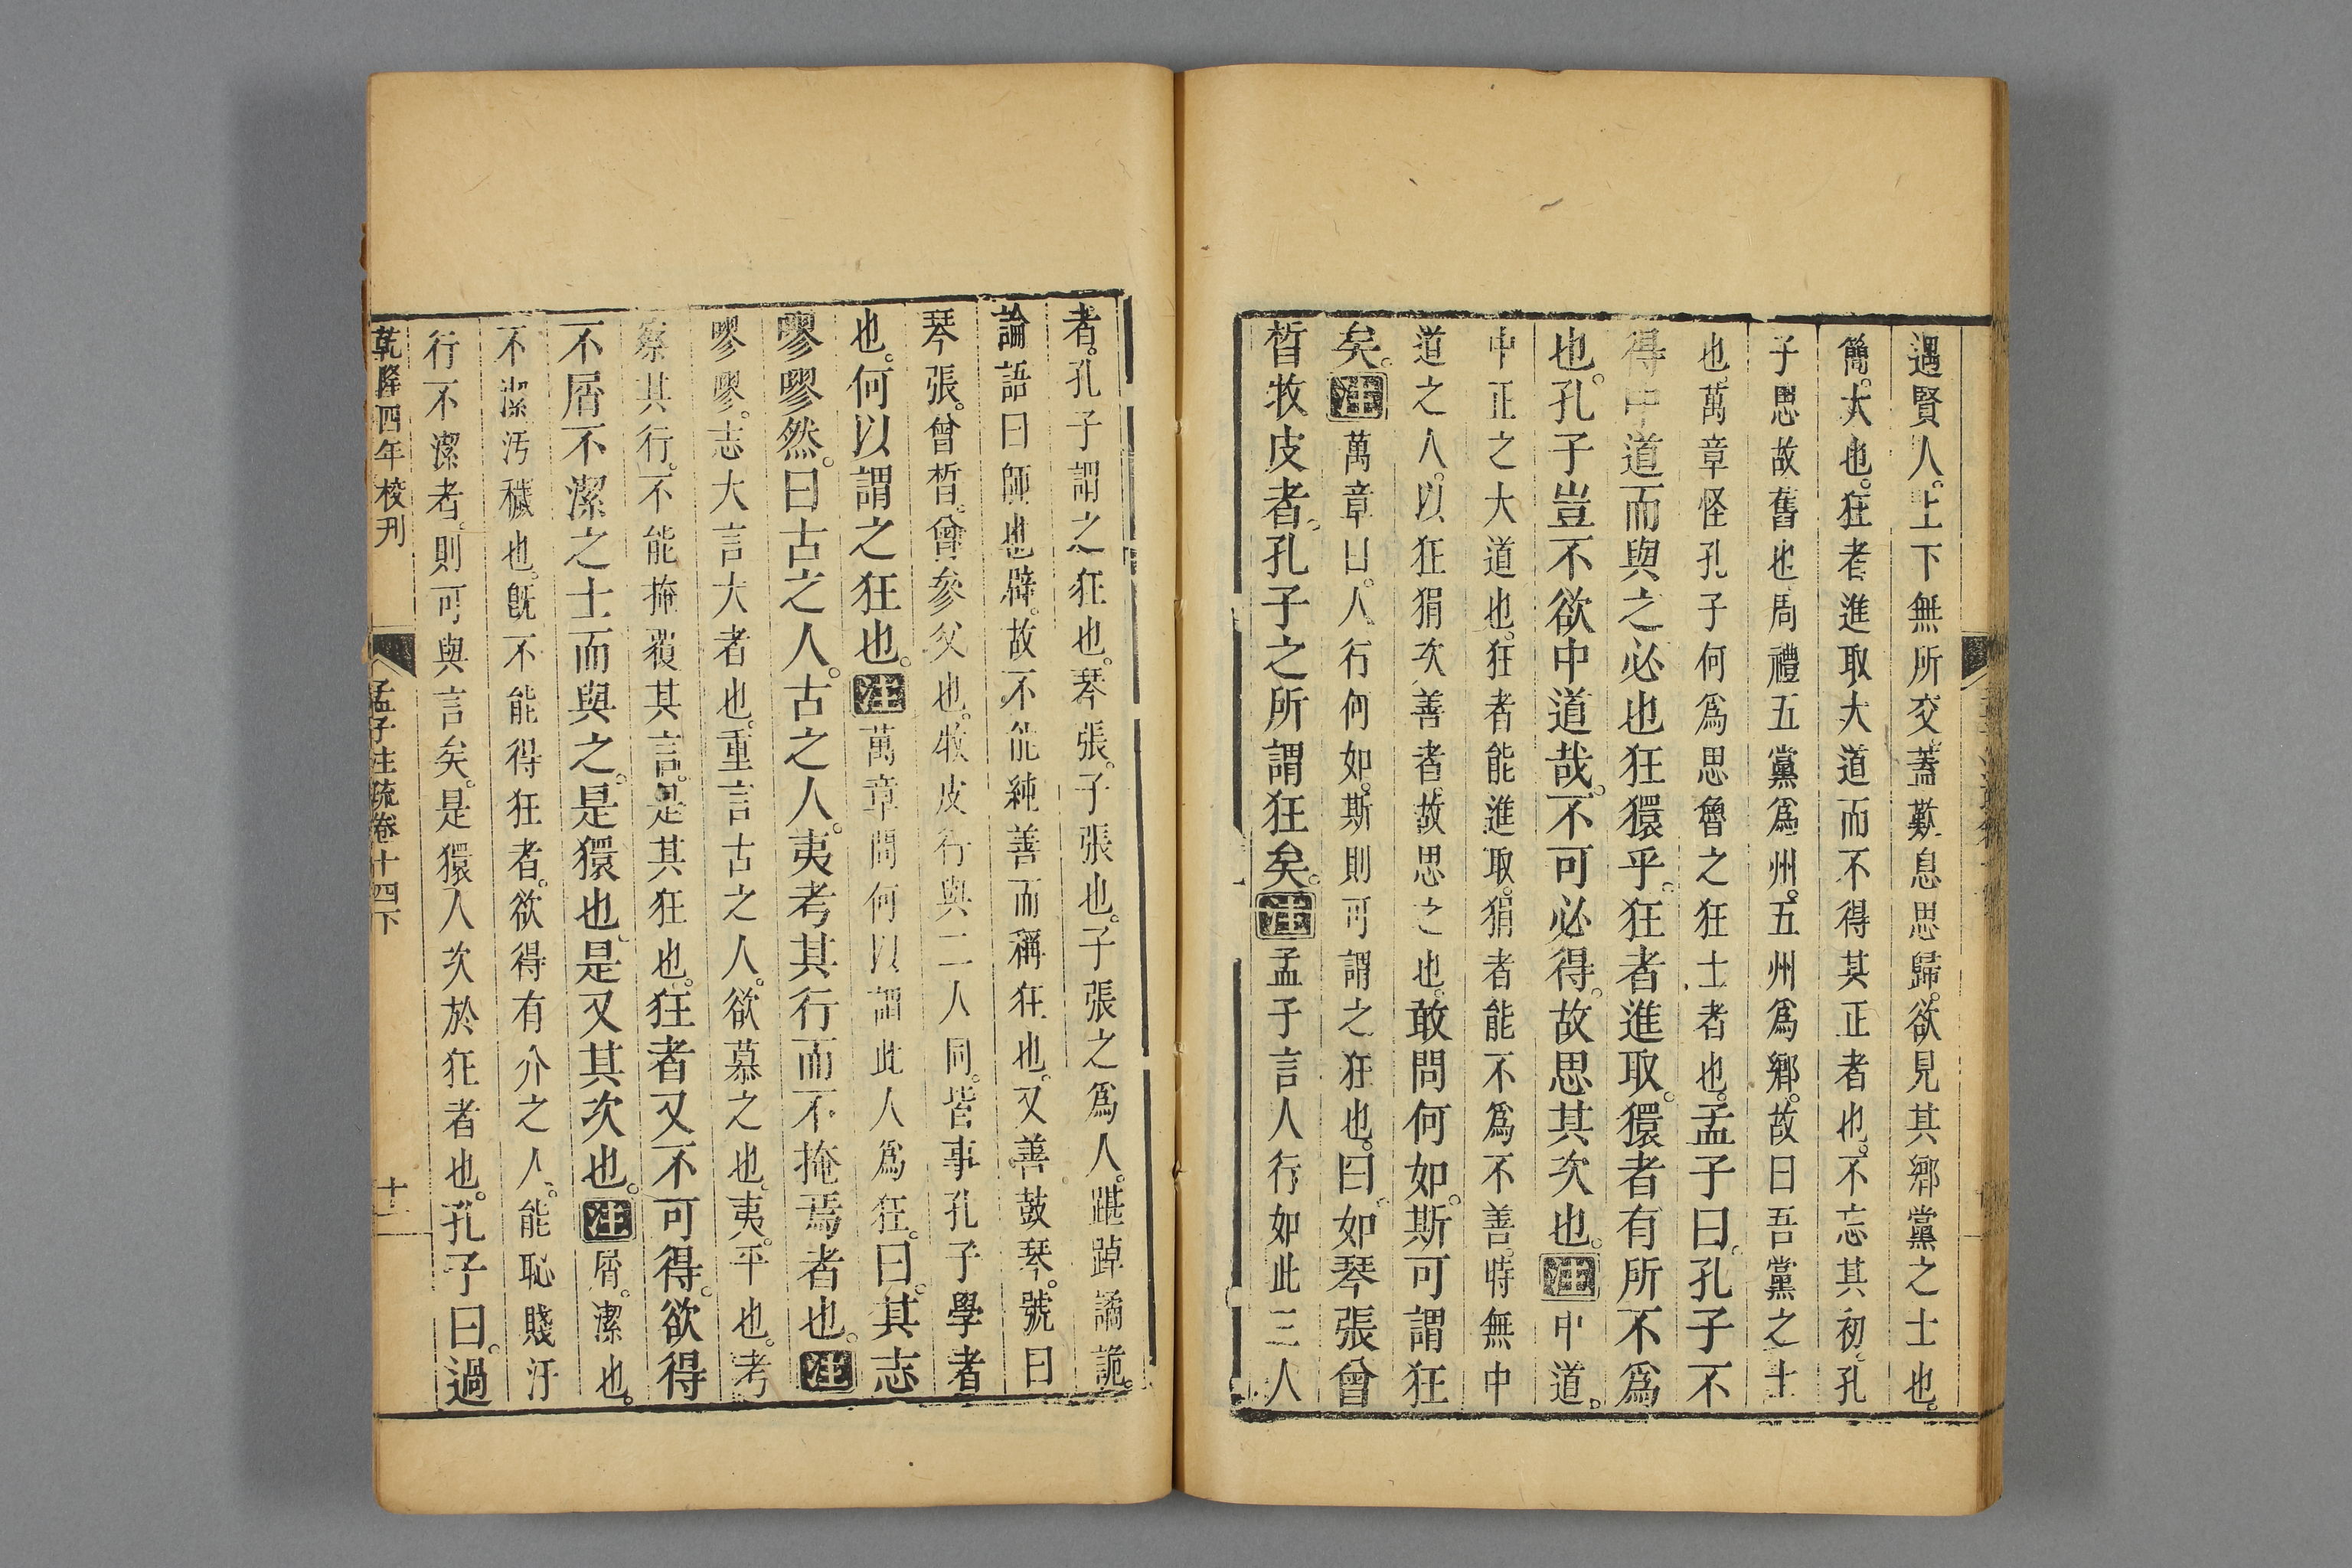 遇賢人。上下無所交。蓋歎息思歸。欲見其鄉黨之士也。
簡。大也。狂者進取大道而不得其正者也。不忘其初。孔
子思故舊也周禮五黨爲州。五州爲鄉。故曰吾黨之士
也。萬章怪孔子何爲思魯之狂士者也。孟子曰。孔子不
得中道而與之必也狂獧乎。狂者進取。獧者有所不爲
也。孔子豈不欲中道哉。不可必得。故思其次也。注中道。
中正之大道也。狂者能進取。狷者能不爲不善。時無中
道之人。以狂狷次善者。故思之也。敢問何如。斯可謂狂
矣。注萬章曰。人行何如。斯則可謂之狂也。曰。如琴張曾
晳牧皮者。孔子之所謂狂矣。注孟子言人行如此三人
者。孔子謂之狂也。琴張。子張也。子張之爲人。踸踔譎詭。
論語曰師也辟。故不能純善而稱狂也。又善鼓琴。號曰
琴張。曾晳。曾參父也。牧皮行與二人同。皆事孔子學者
也。何以謂之狂也。注萬章問何以謂此人爲狂。曰。其志
嘐嘐然。曰古之人。古之人。夷考其行而不掩焉者也。注
嘐嘐。志大言大者也。重言古之人。欲慕之也。夷。平也。考
察其行。不能掩覆其言。是其狂也。狂者又不可得。欲得
不屑不潔之士而與之。是獧也。是又其次也。注屑。潔也。
不潔。汚穢也。旣不能得狂者。欲得有介之人。能恥賤汙
行不潔者。則可與言矣。是獧人次於狂者也。孔子曰。過
乾隆四年校刊
孟子注疏卷十四下
十二